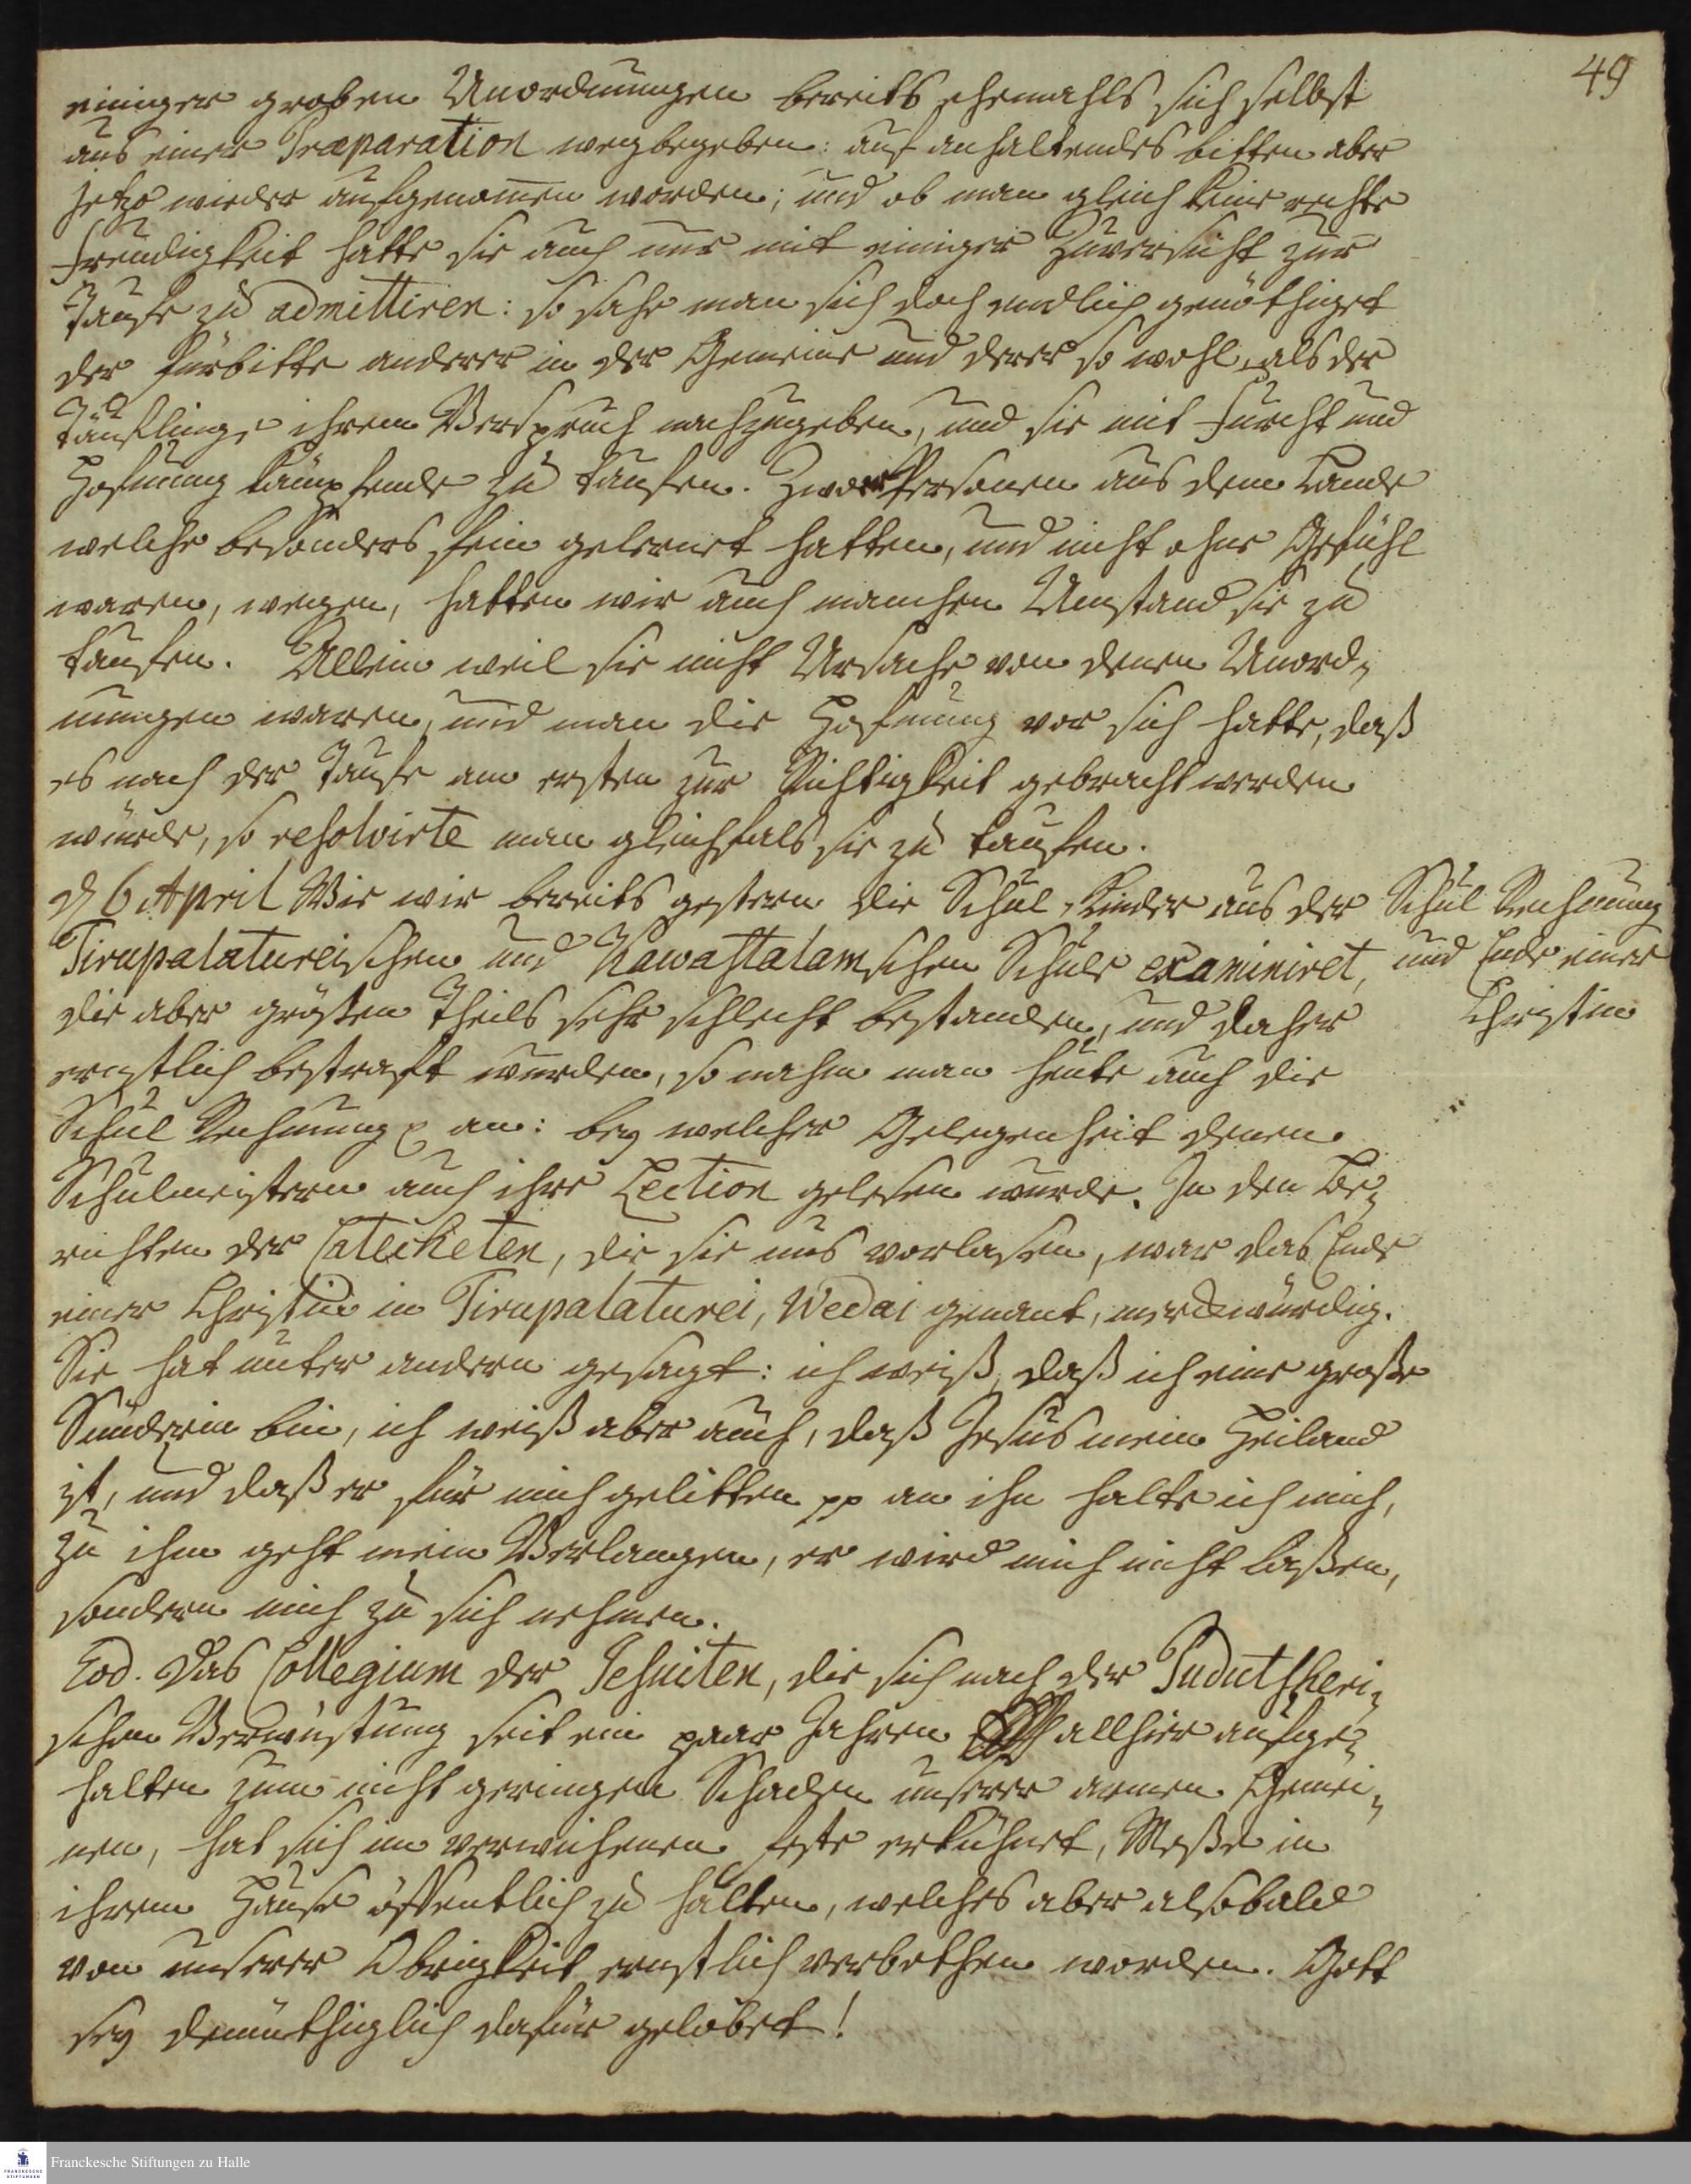 49
einiger groben Unordnungen bereits ehemahls sich selbst
aus einer Præparation wegbegeben: auf anhaltendes bitten aber
jetzo wieder aufgenom̄en worden; und ob man gleich keine rechte
Freudigkeit hatte sie auch nur mit einiger Zuversicht zur
Taufe zu admittiren: so sahe man sich doch endlich genöthiget
der Fürbitte anderer in der Gemeine und derer so wohl, als der
Täuflinge ihrem Verspruch nachzugeben, und sie mit Furcht und
Hofnung kämpfende zu taufen. Zwoer Personen aus dem Lande
welche besonders fein gelernet hatten, und nicht ohne Gefühl
waren, wegen, hatten wir auch manchen Umstand sie zu
taufen. Allein weil sie nicht Ursache von denen Unord-
nungen waren, und man die Hofnung vor sich hatte, daß
es nach der Taufe am ersten zur Richtigkeit gebracht werden
würde, so resolvirte man gleichfals sie zu taufen.
d 6 April Wie wir bereits gestern die Schul-Kinder aus der
Tirupalatureischen und Kawastalamschen Schule examiniret,
die aber grösten Theils sehr schlecht bestanden, und daher
ernstlich bestraft wurden, so nahm man heute auch die
Schul Rechnung p an: bey welcher Gelegenheit denen
Schulmeistern auch ihre Lection gelesen wurde. In den Be-
richten der Catecheten, die sie uns vorlasen, war das Ende
einer Christin in Tirupalaturei, Wedai genant, merckwürdig.
Sie hat unter andern gesagt: ich weiß, daß ich eine große
Sünderin bin, ich weiß aber auch, daß Jesus mein Heiland
ist, und daß er für mich gelitten pp an ihn halte ich mich,
zu ihm geht mein Verlangen, er wird mich nicht laßen,
sondern mich zu sich nehmen.
Eod. Das Collegium der Jesuiten, die sich nach der Pudutscheri-
schen Verwüstung seit ein paar Jahren allhier aufge-
halten zum nicht geringen Schaden unserer armen Gemei-
nen, hat sich im verwichenen Feste erkühnet, Meße in
ihrem Hause öffentlich zu halten, welches aber alsobald
von unserer Obrigkeit ernstlich verbothen worden. Gott
sey demüthiglich dafür gelobet!
Schul Rechnung
und Ende einer
Christin
Franckesche Stiftungen zu Halle
FRANCKESCHE
STIFTUNGEN